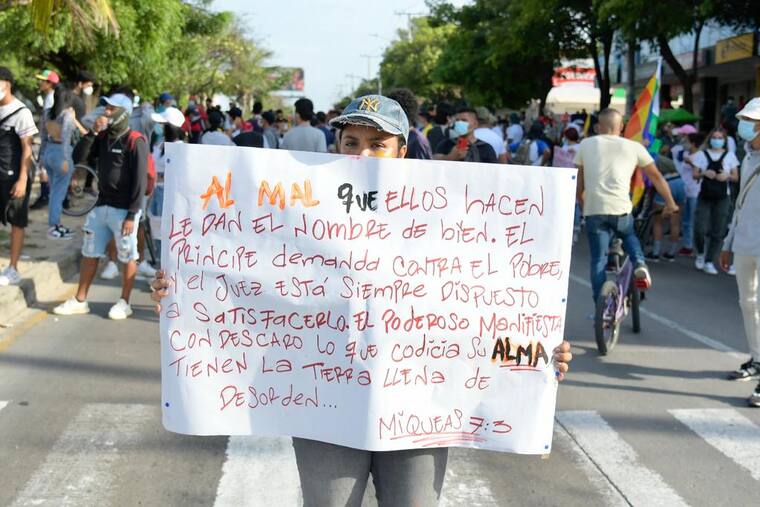 AL MAL que ELLOS HACEN
LE DAN EL NOMBRE de BIEN. EL
PRINCIPE demanda CONTRA EL POBRE,
Y el JUEZ ESTÁ SIEMPRE DISPUESTO
a SATISFACERLO. EL PODEROSO MANIFIESTA
CON DESCARO LO QUE CODICIA SU ALMA
TIENEN LA TIERRA LLENA DE
DESORDEN...
MIQUEAS 7:3